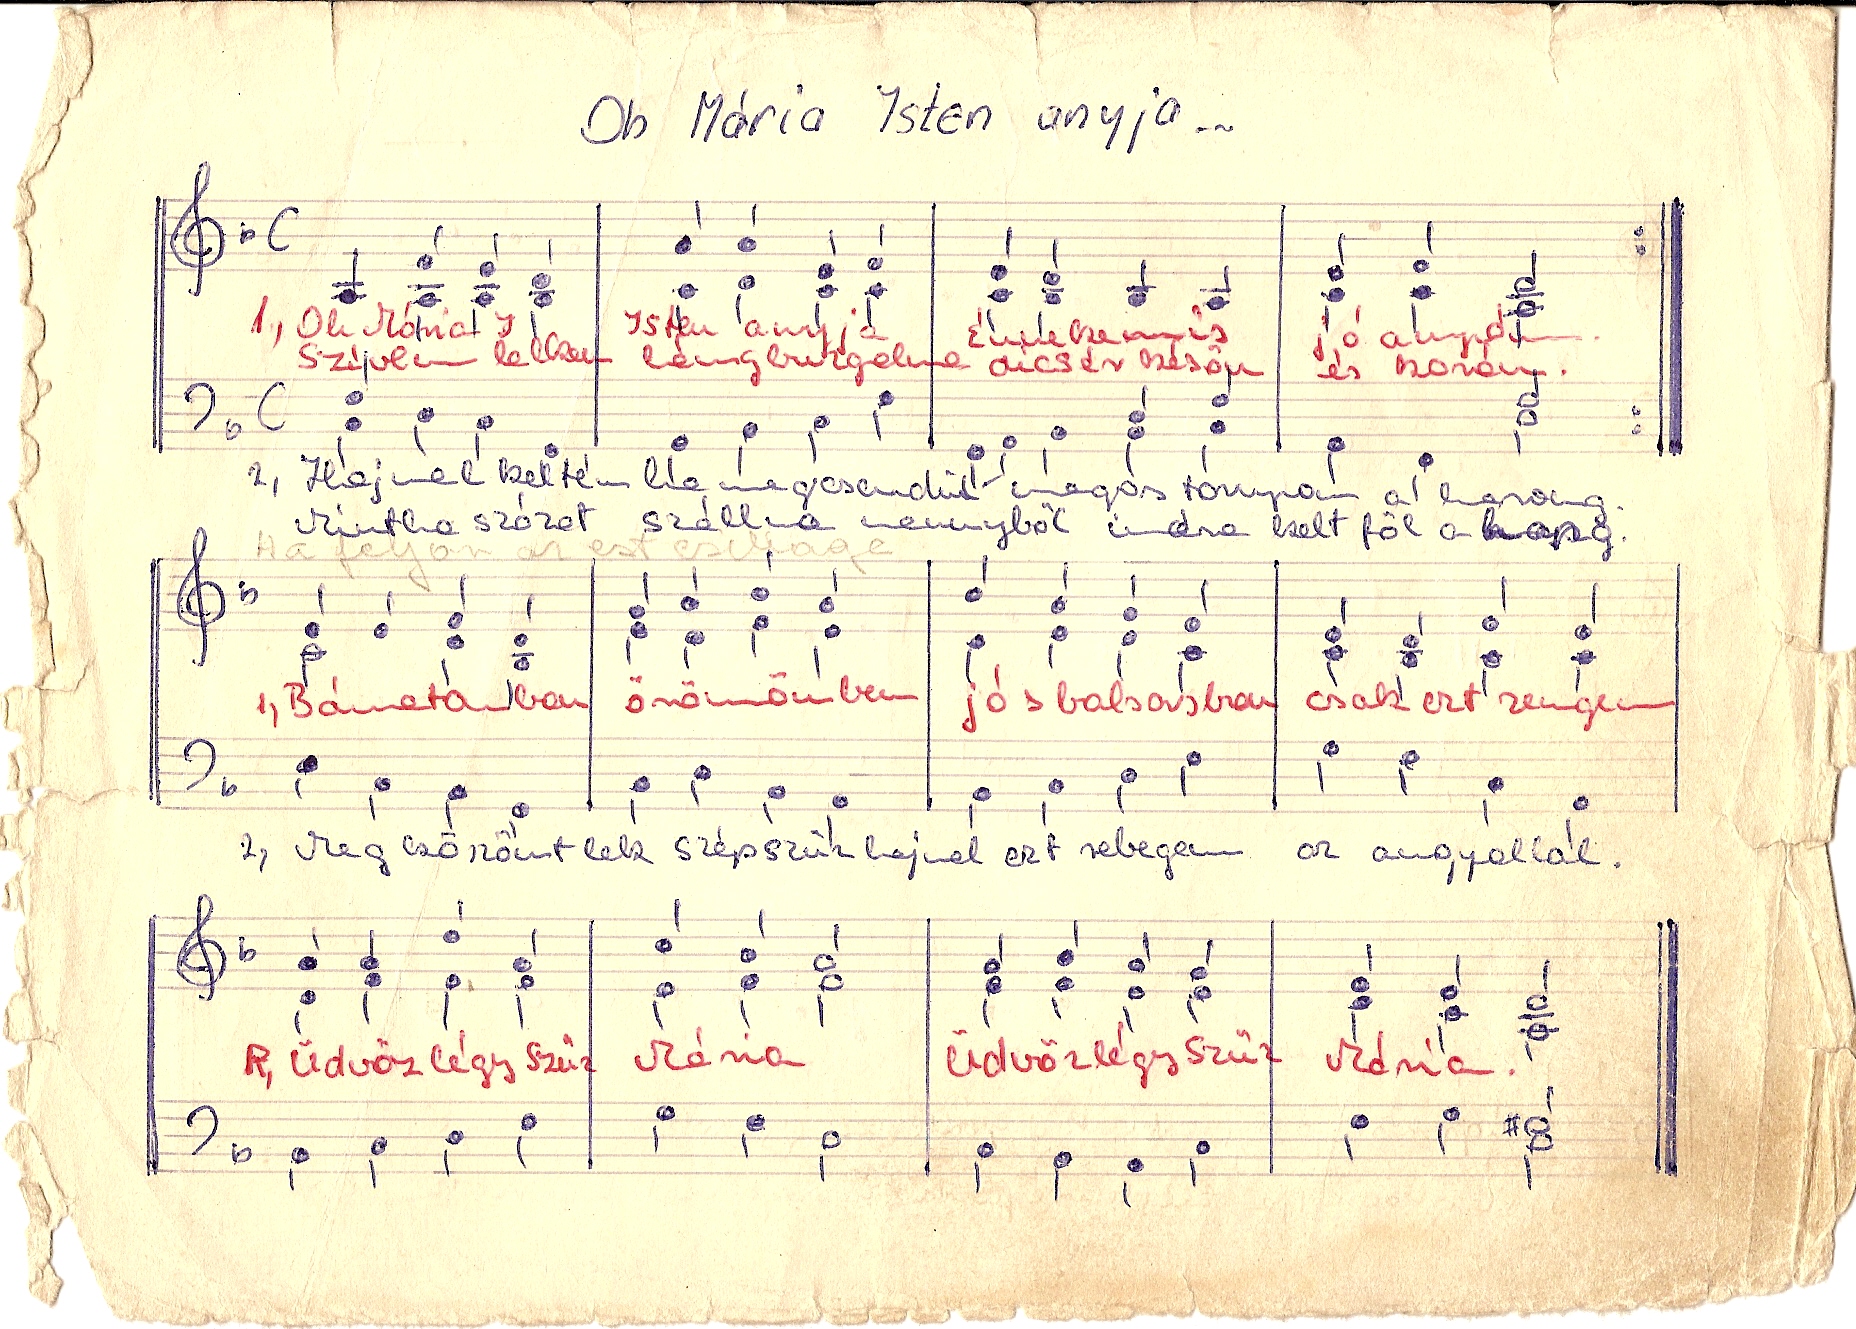 Oh Mária Isten anyja...
1., Oh Mária I Isten anyja Énnekem is jó anyám.
Szívem lelkem lángbuzgalma dicsér késön és korán.
2, Hajnal keltén ha megcsendül magos tornyán a harang.
Mintha szózat szállna mennyböl imára kelt föl a hang.
Ha feljön az est csillaga
1, Bánatomban örömömben jó s balsorsban csak ezt zengem
2, Megköszöntlek szép szüz hajnal ezt rebegem az angyallal.
R, Üdvöz légy Szüz Mária Üdvöz légy Szüz Mária.